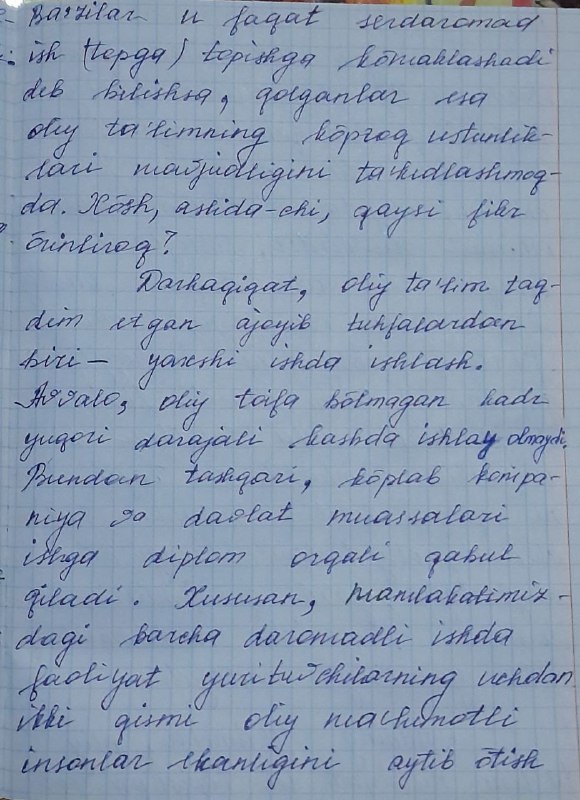 Ba'zilar u faqat serdaromad
ish (topga) topishga kõmaklashadi
deb bilishsa, qolganlar esa
oliy ta'limning kõproq ustunlik-
lari mavjudligini ta'kidlashmoq-
da. Xõsh, aslida-chi, qaysi fikr
õrinliroq?
Darhaqiqat, oliy ta'lim taq-
dim etgan ajoyib tuhfalardan
biri — yaxshi ishda ishlash.
Avvalo, oliy toifa bõlmagan kadr
yuqori darajali kasbda ishlay olmaydi.
Bundan tashqari, kõplab kompa-
niya va davlat muassalari
ishga diplom orqali qabul
qiladi. Xususan, mamlakatimiz-
dagi barcha daromadli ishda
faoliyat yurituvchilarning uchdan
ikki qismi oliy ma'lumotli
insonlar ekanligini aytib õtish